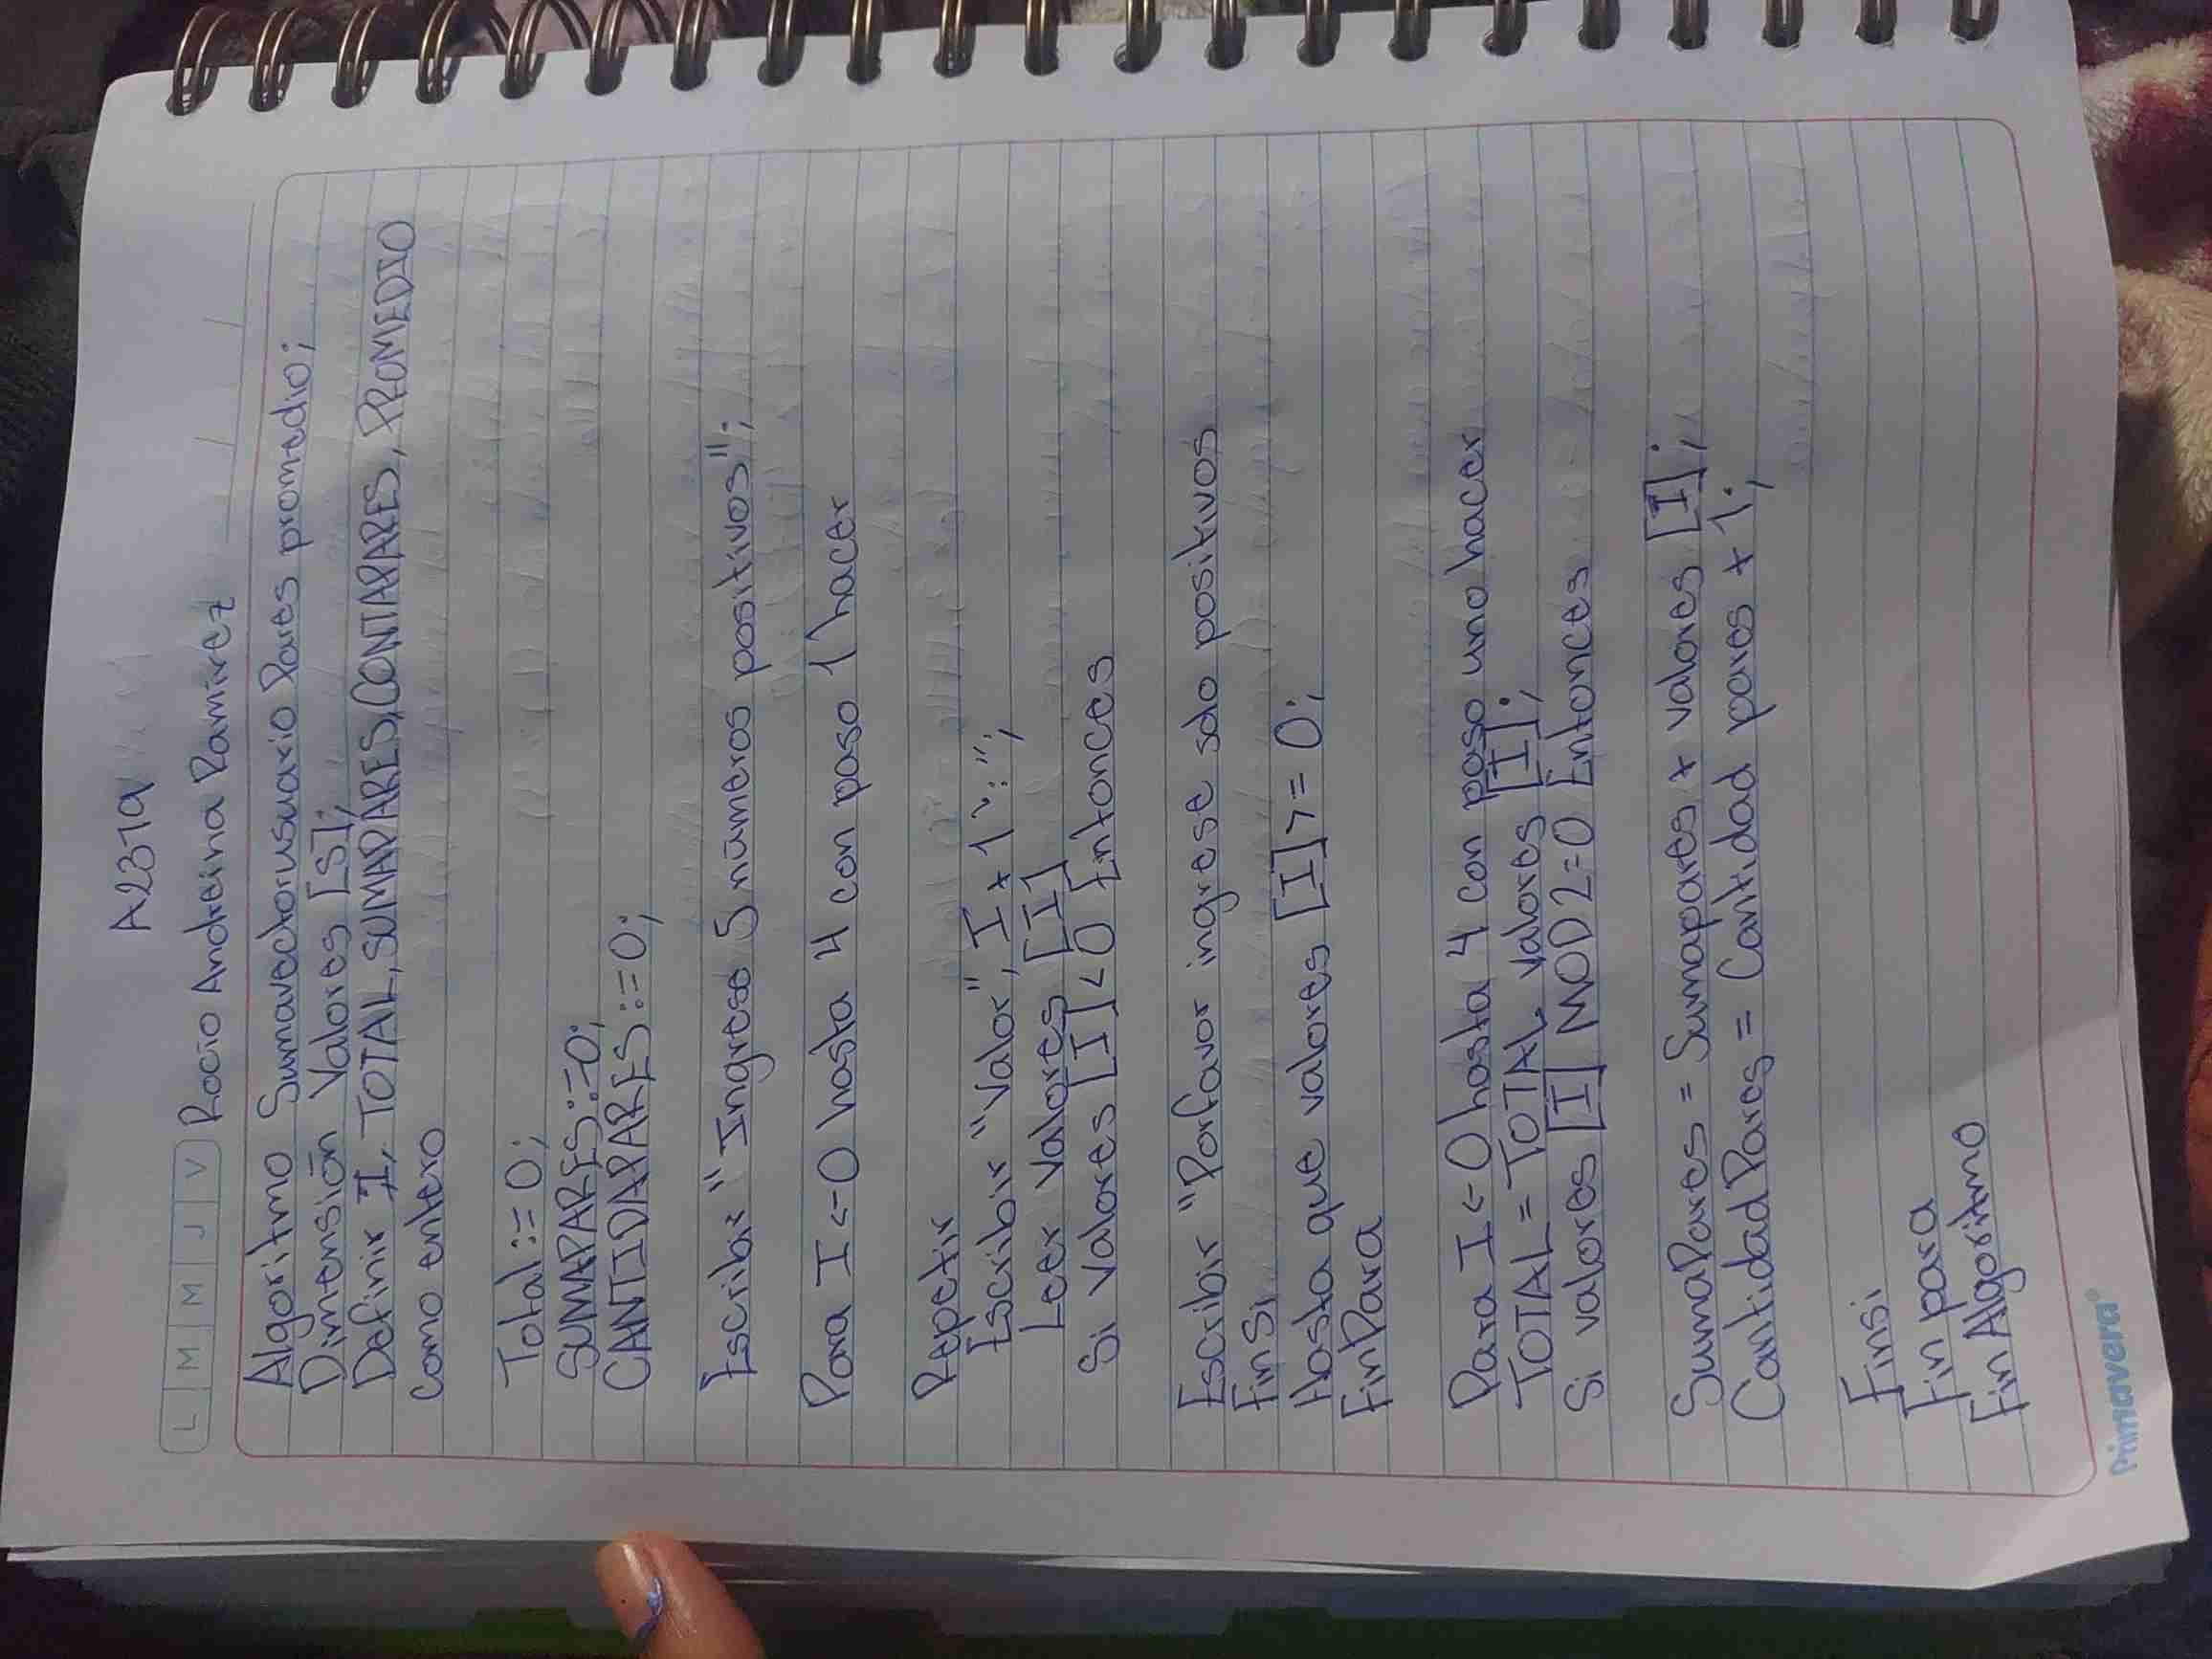 A2319
L M M J V Rocio Andreina Ramirez
Algoritmo Sumavectorusuario Pares promedio;
Dimensión Valores [5];
Definir I, TOTAL, SUMAPARES, CONTAPARES, PROMEDIO
como entero
Total := 0;
SUMAPARES := 0;
CANTIDAPARES := 0;
Escribir "Ingrese 5 números positivos";
Para I <- 0 hasta 4 con paso 1 hacer
Repetir
Escribir "Valor", I + 1 ":";
Leer Valores [I]
Si valores [I] < 0 Entonces
Escribir "Porfavor ingrese solo positivos
FinSi
Hasta que valores [I] >= 0;
FinPara
Para I <- 0 hasta 4 con paso uno hacer
TOTAL = TOTAL + valores [I];
Si valores [I] MOD 2 = 0 Entonces
SumaPares = Sumapares + valores [I];
CantidadPares = Cantidad pares + 1;
Finsi
Fin para
Fin Algoritmo
Primavera